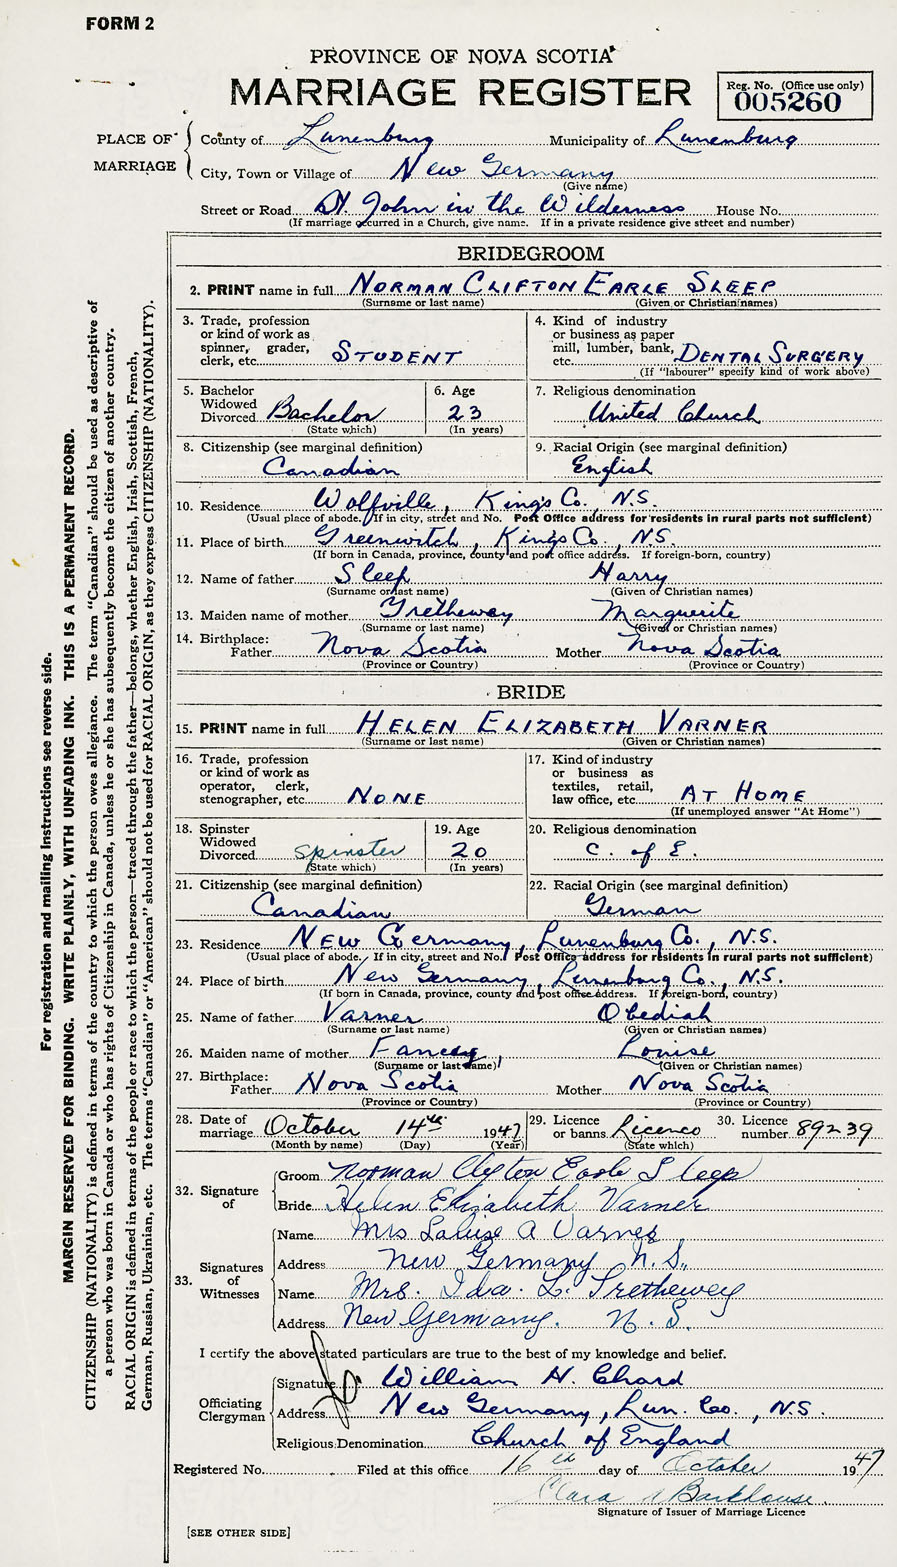 FORM 2
PROVINCE OF NOVA SCOTIA
MARRIAGE REGISTER
Reg. No. (Office use only)
005260
PLACE OF MARRIAGE
County of Lunenburg Municipality of Lunenburg
City, Town or Village of New Germany
(Give name)
Street or Road St. John in the Wilderness House No.
(If marriage occurred in a Church, give name. If in a private residence give street and number)
BRIDEGROOM
2. PRINT name in full NORMAN CLIFTON EARLE SLEEP
(Surname or last name) (Given or Christian names)
3. Trade, profession or kind of work as spinner, grader, clerk, etc. STUDENT
4. Kind of industry or business as paper mill, lumber, bank, etc. DENTAL SURGERY
(If "labourer" specify kind of work above)
5. Bachelor Widowed Divorced Bachelor
(State which)
6. Age 23
(In years)
7. Religious denomination
United Church
8. Citizenship (see marginal definition)
Canadian
9. Racial Origin (see marginal definition)
English
10. Residence Wolfville, King's Co., N.S.
(Usual place of abode. If in city, street and No. Post Office address for residents in rural parts not sufficient)
11. Place of birth Greenwitch, King's Co., N.S.
(If born in Canada, province, county and post office address. If foreign-born, country)
12. Name of father Sleep Harry
(Surname or last name) (Given or Christian names)
13. Maiden name of mother Trethewey Marguerite
(Surname or last name) (Given or Christian names)
14. Birthplace:
Father Nova Scotia Mother Nova Scotia
(Province or Country) (Province or Country)
BRIDE
15. PRINT name in full HELEN ELIZABETH VARNER
(Surname or last name) (Given or Christian names)
16. Trade, profession or kind of work as operator, clerk, stenographer, etc. NONE
17. Kind of industry or business as textiles, retail, law office, etc. AT HOME
(If unemployed answer "At Home")
18. Spinster Widowed Divorced Spinster
(State which)
19. Age 20
(In years)
20. Religious denomination
C. of E.
21. Citizenship (see marginal definition)
Canadian
22. Racial Origin (see marginal definition)
German
23. Residence New Germany, Lunenburg Co., N.S.
(Usual place of abode. If in city, street and No. Post Office address for residents in rural parts not sufficient)
24. Place of birth New Germany, Lunenburg Co., N.S.
(If born in Canada, province, county and post office address. If foreign-born, country)
25. Name of father Varner Obediah
(Surname or last name) (Given or Christian names)
26. Maiden name of mother Louise
(Surname or last name) (Given or Christian names)
27. Birthplace:
Father Nova Scotia Mother Nova Scotia
(Province or Country) (Province or Country)
28. Date of marriage October 14th 1947
(Month by name) (Day) (Year)
29. Licence or banns Licence
(State which)
30. Licence number 89239
32. Signature of
Groom Norman Clifton Earle Sleep
Bride Helen Elizabeth Varner
33. Signatures of Witnesses
Name Mrs Louise A Varner
Address New Germany N.S.
Name Mrs. Ida L. Trethewey
Address New Germany. N.S.
I certify the above stated particulars are true to the best of my knowledge and belief.
Officiating Clergyman
Signature William H. Chard
Address New Germany, Lun. Co., N.S.
Religious Denomination Church of England
Registered No. Filed at this office 16th day of October 1947
Clara Barkhouse
Signature of Issuer of Marriage Licence
[SEE OTHER SIDE]
For registration and mailing instructions see reverse side.
MARGIN RESERVED FOR BINDING. WRITE PLAINLY, WITH UNFADING INK. THIS IS A PERMANENT RECORD.
CITIZENSHIP (NATIONALITY) is defined in terms of the country to which the person owes allegiance. The term "Canadian" should be used as descriptive of
a person who was born in Canada or who has rights of Citizenship in Canada, unless he or she has subsequently become the citizen of another country.
RACIAL ORIGIN is defined in terms of the people or race to which the person—traced through the father—belongs, whether English, Irish, Scottish, French,
German, Russian, Ukrainian, etc. The terms "Canadian" or "American" should not be used for RACIAL ORIGIN, as they express CITIZENSHIP (NATIONALITY).